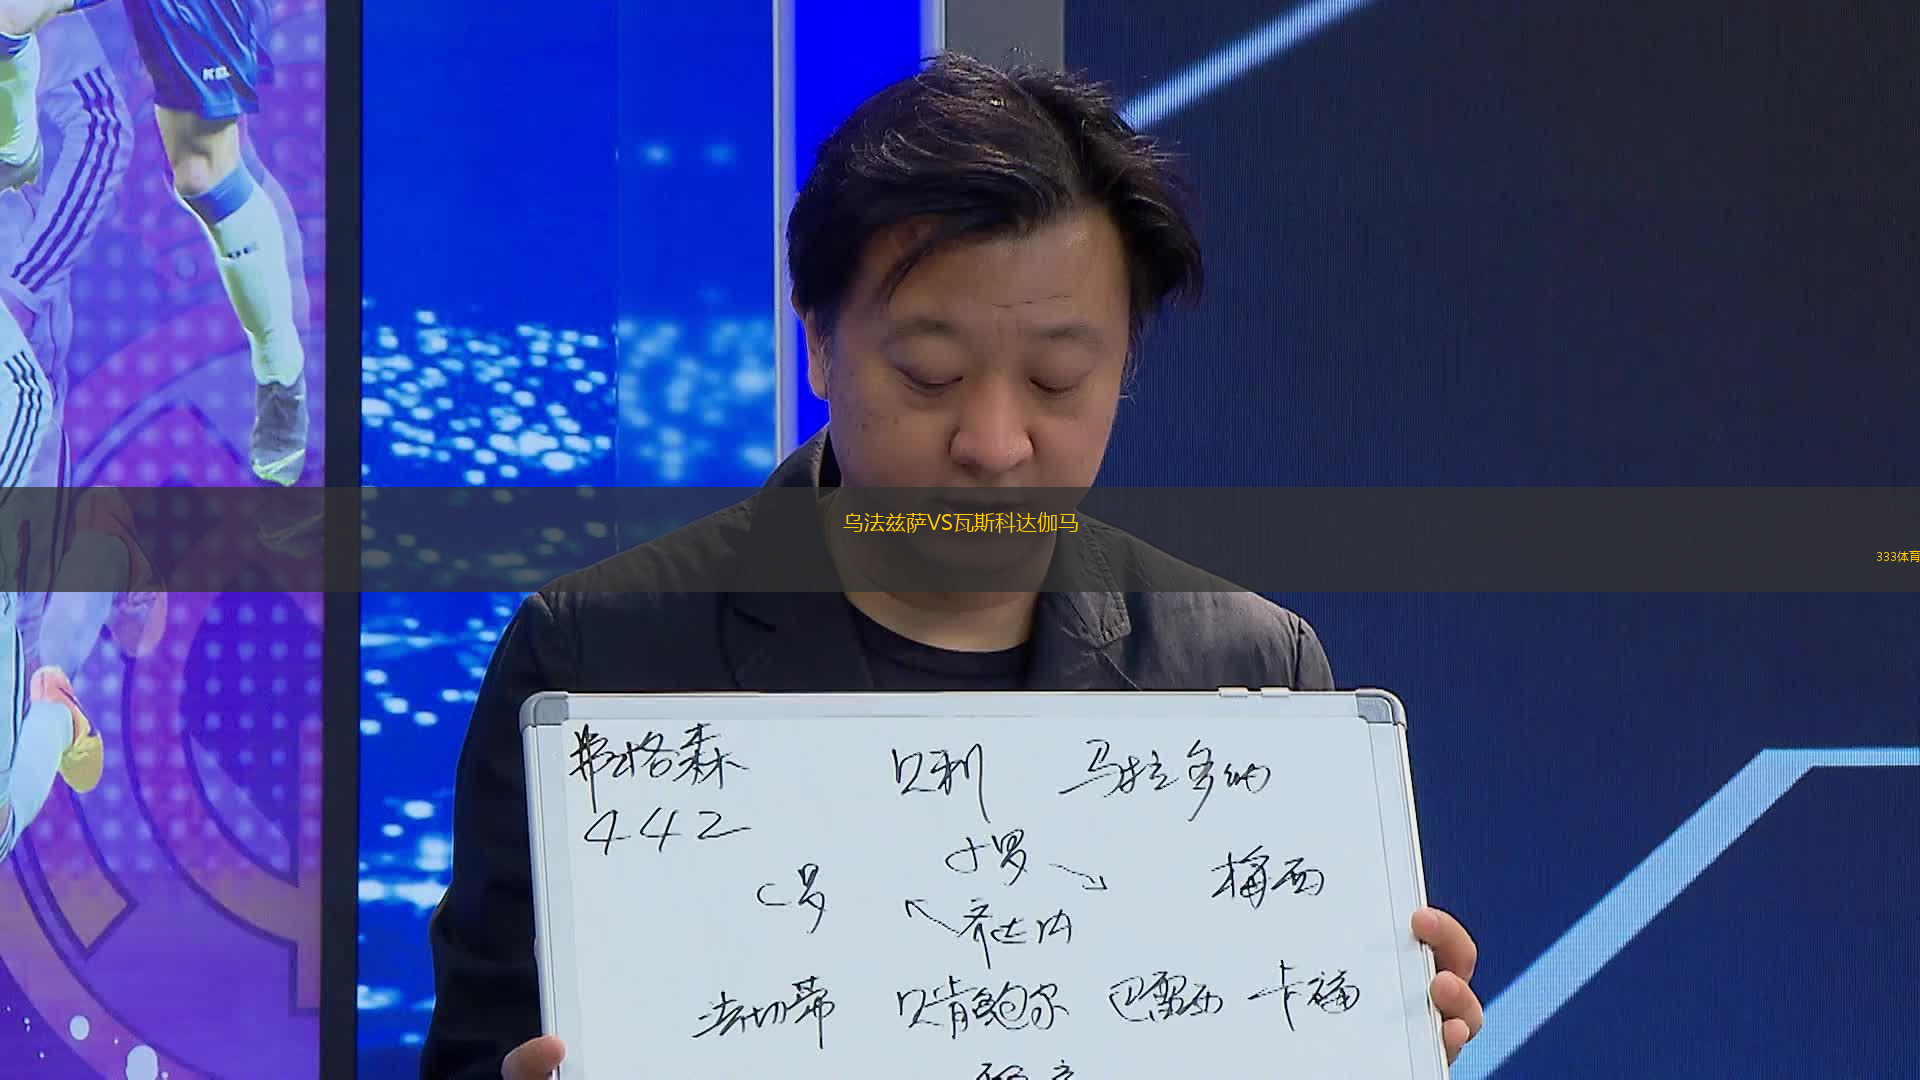 KEL
乌法兹萨VS瓦斯科达伽马
333体育
弗格森 贝利 马拉多纳
442
小罗
C罗 梅西
齐达内
法切蒂 贝肯鲍尔 巴雷西 卡福